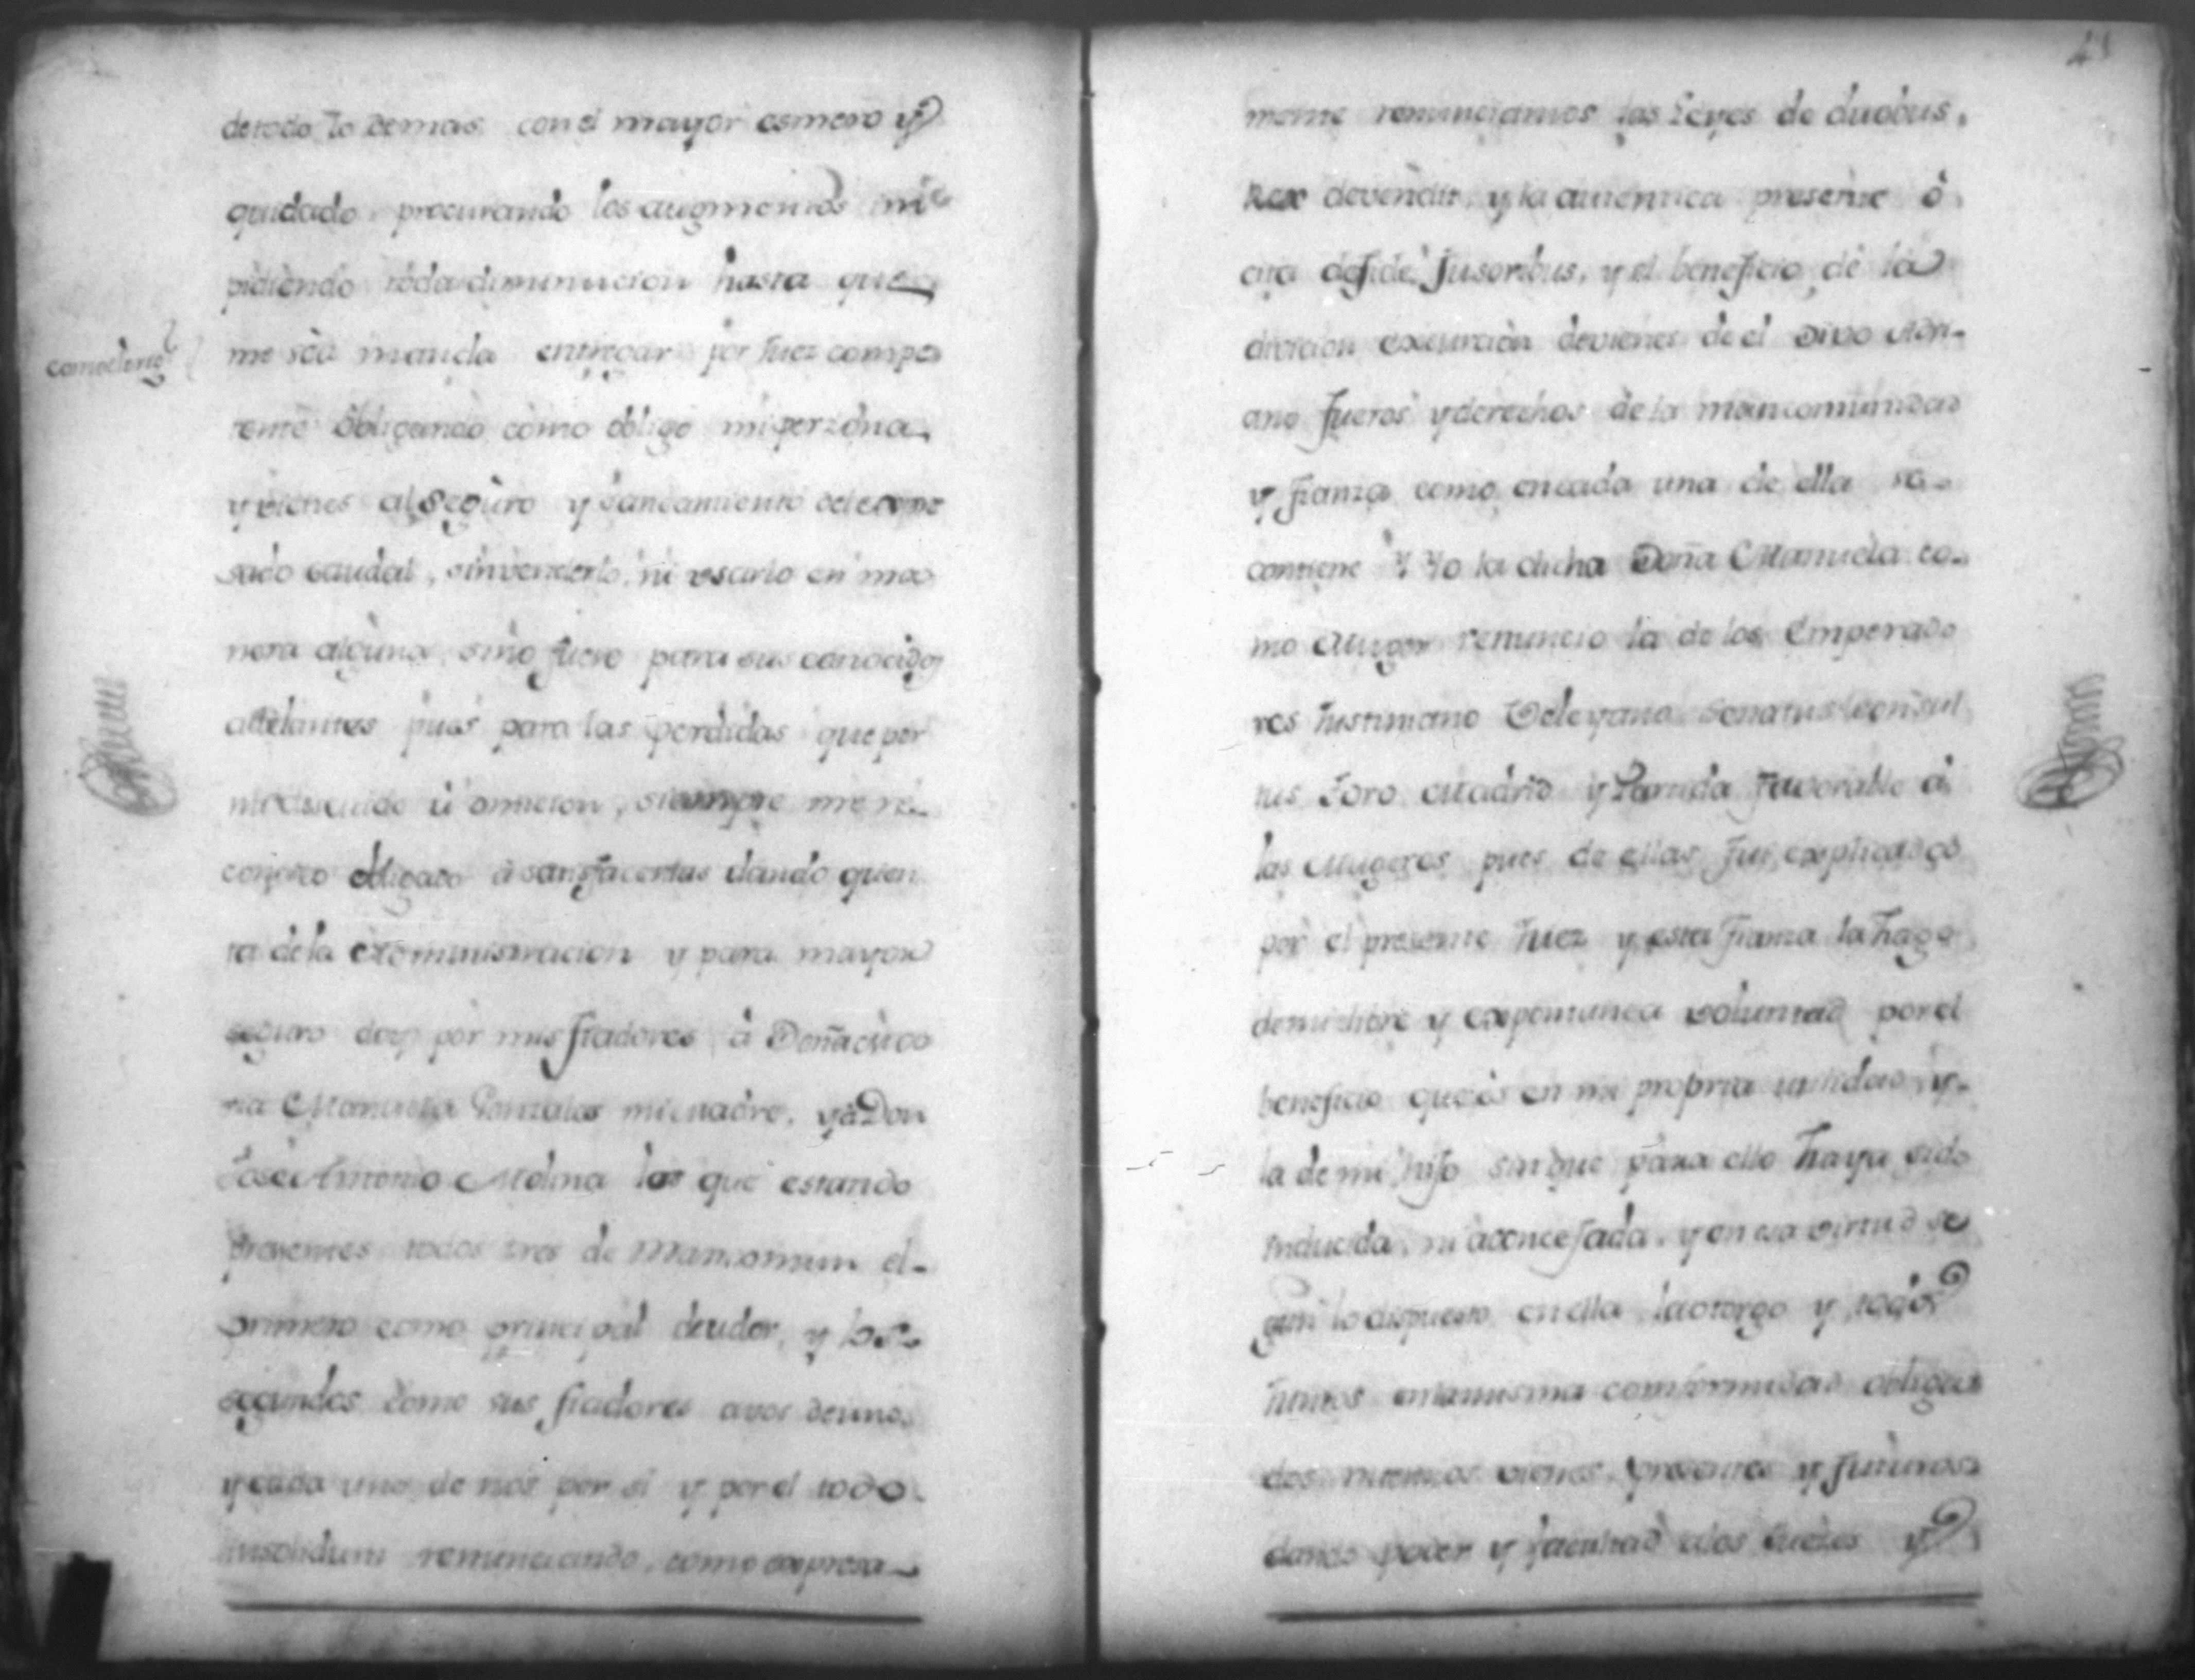 de todo lo demas con el mayor esmero y
quidado procurando los augmentos im
pidiendo toda diminucion hasta que
me sea manda entregar por Juez compe
tente obligando como obligo mi perzona
y vienes al seguro y saneamiento del expre
sado caudal, sin venderlo, ni usarlo en ma
nera alguna sino fuere para sus conocidos
attelantes pues para las perdidas que por
mi descuido ú omicion, siempre me re
conosco obligado à satisfacerlas dando quen
ta de la administracion y para mayor
seguro doy por mis fiadores à Doña
Manuela Gonzales mi madre, y à Don
José Antonio Molina los que estando
presentes todos tres de mancomun el
primero como principal deudor, y los
segundos como sus fiadores a vos de uno
y cada uno de nos por si y por el todo
insolidum renunciando, como expresa
41
mente renunciamos las Leyes de duobus,
Rex devendit, y la autentica presente ò
cita defide Jusoribus, y el beneficio de la
divicion excurcion de vienes de el Divo Adri
ano fueros y derechos de la mancomunidad
y fianza como en cada una de ella se
contiene Y Yo la dicha Doña Manuela co
mo Muger renuncio la de los Emperado
res Justiniano Veleyano Senatus Consul
tus Toro Madrid y Partida favorable à
las Mugeres pues de ellas fui explicados
por el presente Juez y esta fianza la hago
de mi libre y expontanea voluntad por el
beneficio que es en mi propria utilidad y
la de mi hijo sin que para ello haya sido
inducida, ni aconcejada, y en esa virtud se
gun lo dispuesto en ella, la otorgo y todos
juntos en la misma conformidad obliga
dos nuestros vienes, presentes y futuros
dando poder y facultad a los Juezes y